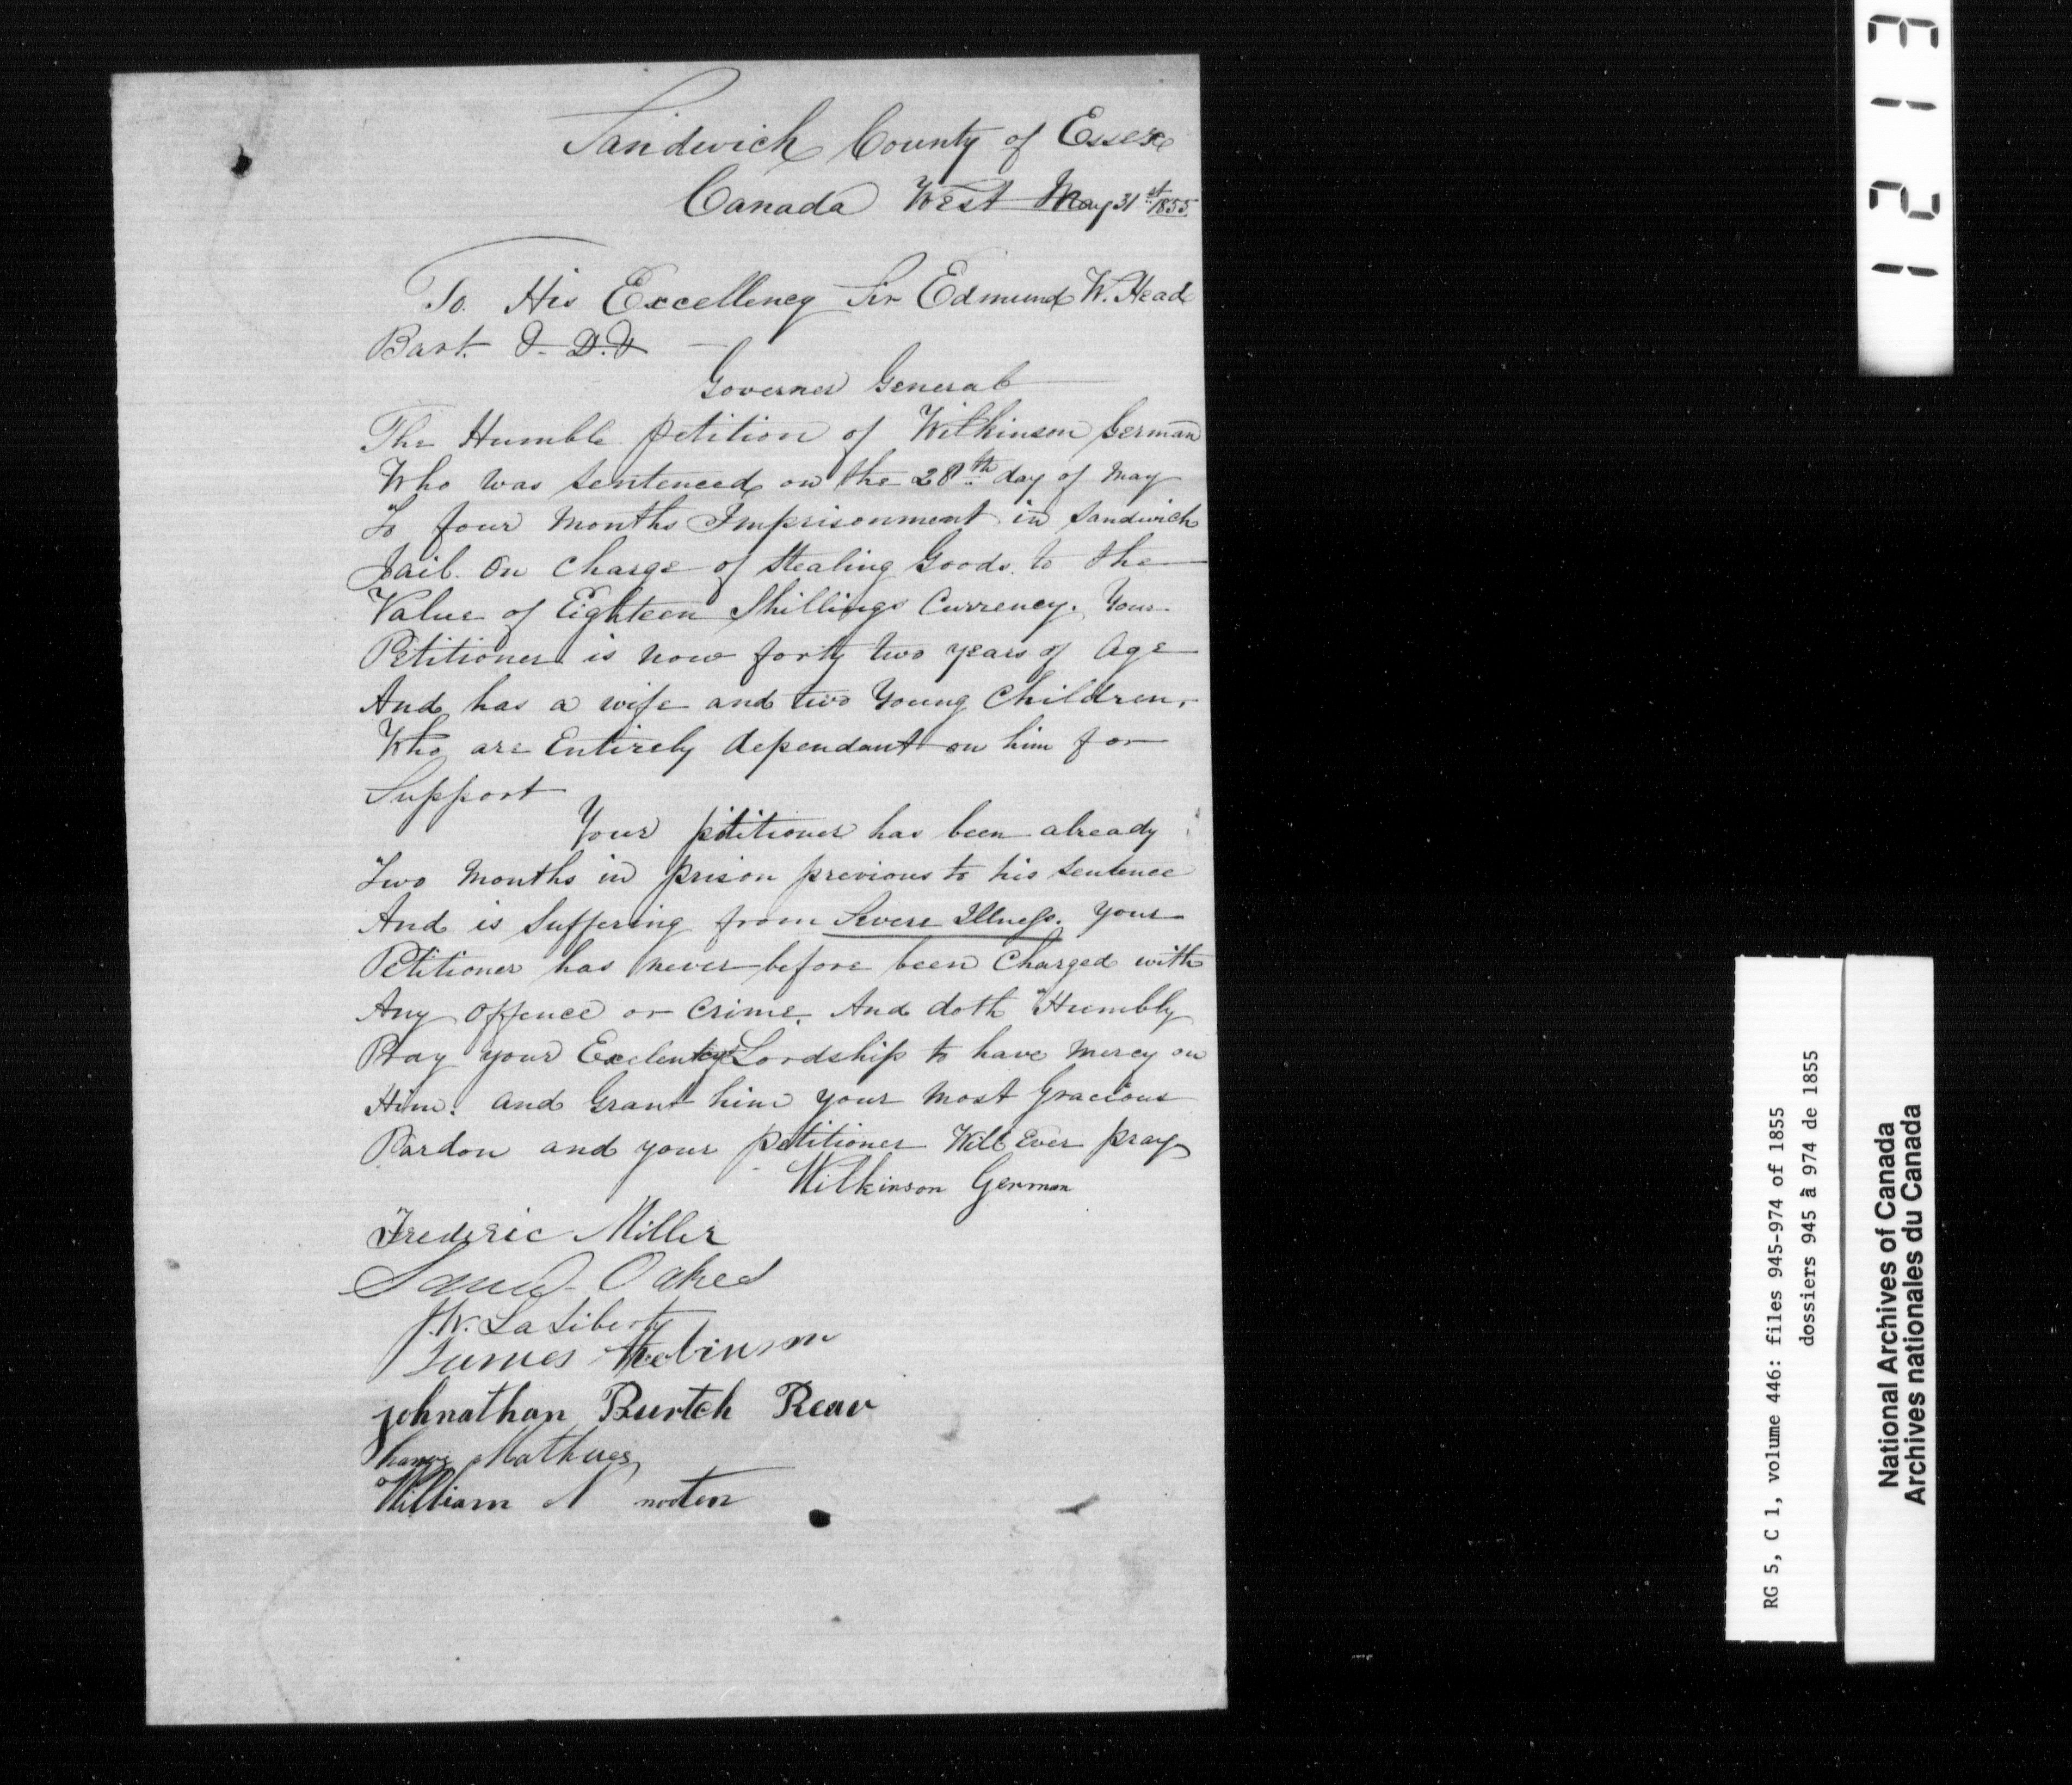 Sandwich County of Essex
Canada West May 31st 1855
To His Excellency Sir Edmund W. Head
Bart.
Governer General
The Humble petition of Wilkinson German
Who was sentenced on the 28th day of May
To four Months Imprisonment in Sandwich
Jail. On Charge of Stealing Goods. to the
Value of Eighteen Shillings Currency. Your
Petitioner is now forty two years of Age
And has a wife and two Young Children.
Who are Entirely dependant on him for
Support
Your petitioner has been already
Two Months in prison previous to his Sentence
And is Suffering from Severe Illness. Your
Petitioner has never before been Charged with
Any Offence or Crime. And doth Humbly
Pray your Lordship to have Mercy on
Him. and Grant him your Most Gracious
Pardon and your petitioner Will Ever pray
Wilkinson German
Frederic Miller
Oakes
J.W. La Liberty
James Robinson
johnathan Burtch
Mathues
William N
1213
RG 5, C 1, volume 446: files 945-974 of 1855
dossiers 945 à 974 de 1855
National Archives of Canada
Archives nationales du Canada